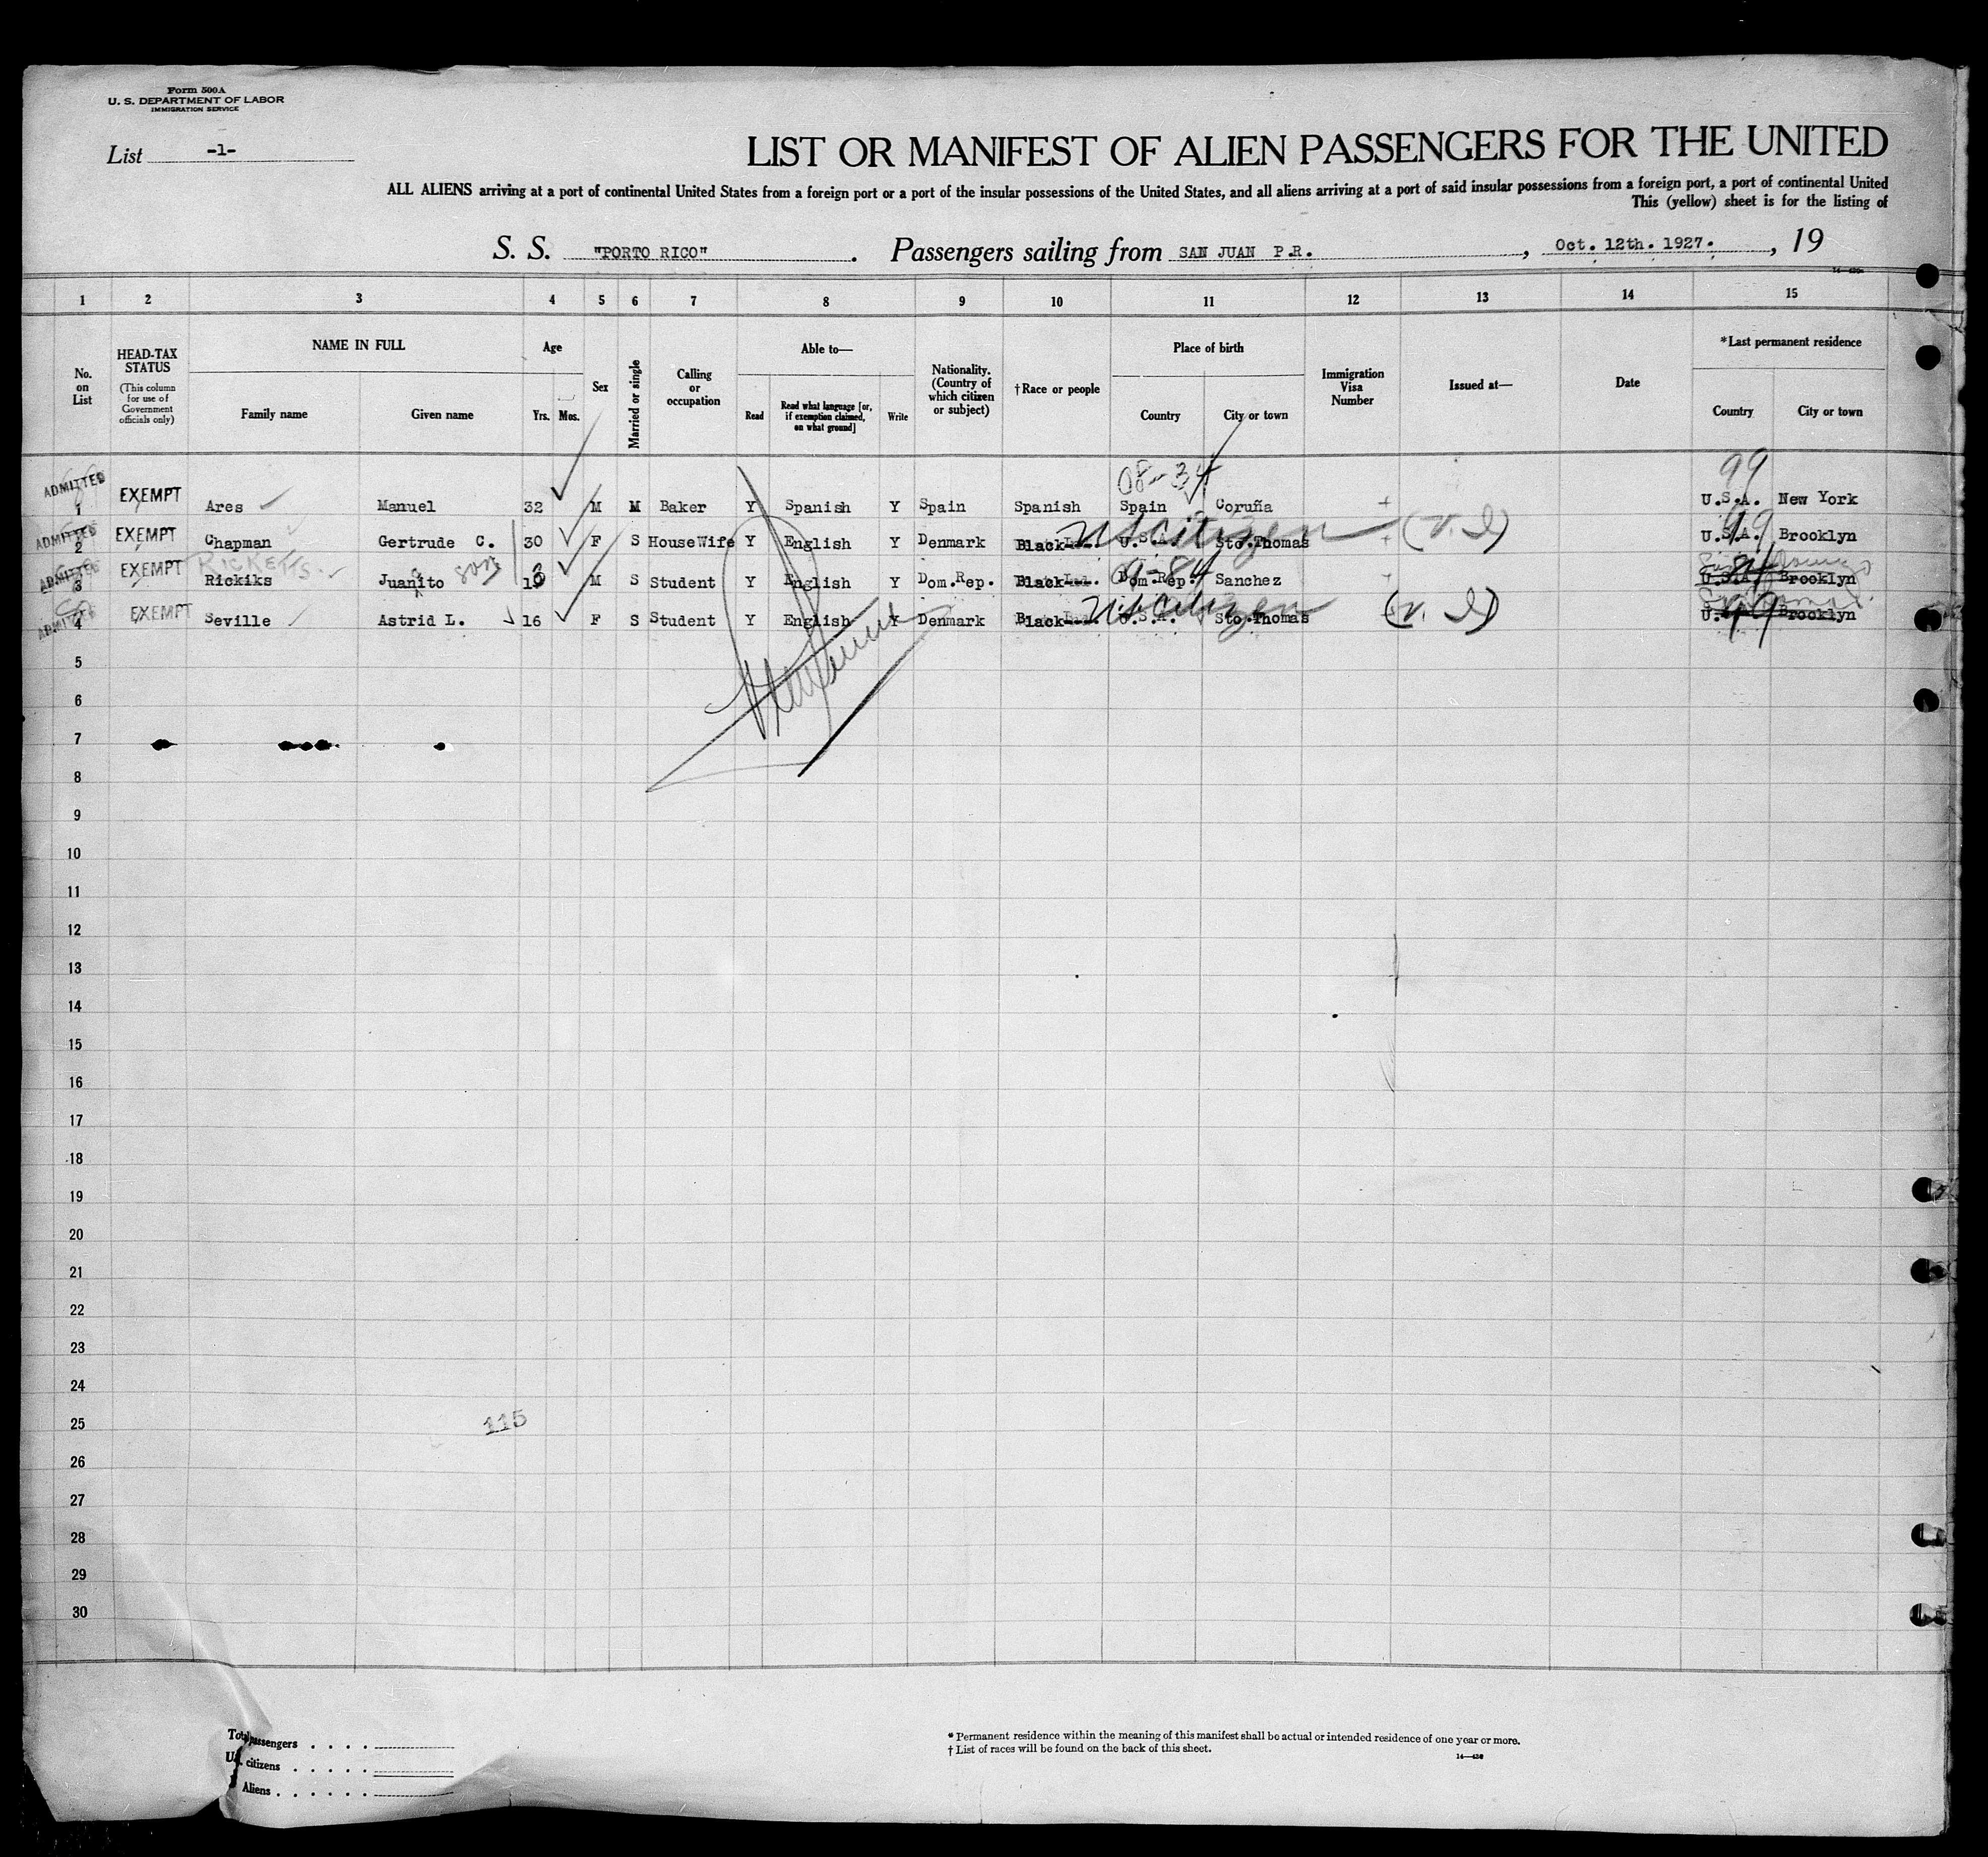 Form 500A
U. S. DEPARTMENT OF LABOR
IMMIGRATION SERVICE
List -1-
LIST OR MANIFEST OF ALIEN PASSENGERS FOR THE UNITED
ALL ALIENS arriving at a port of continental United States from a foreign port or a port of the insular possessions of the United States, and all aliens arriving at a port of said insular possessions from a foreign port, a port of continental United
This (yellow) sheet is for the listing of
S. S. "PORTO RICO". Passengers sailing from SAN JUAN P.R., Oct. 12th. 1927., 19
1 2 3 4 5 6 7 8 9 10 11 12 13 14 15
No. on List
HEAD-TAX STATUS (This column for use of Government officials only)
NAME IN FULL
Family name Given name
Age
Yrs. Mos.
Sex
Married or single
Calling or occupation
Able to—
Read Read what language [or, if exemption claimed, on what ground] Write
Nationality. (Country of which citizen or subject)
† Race or people
Place of birth
Country City or town
Immigration Visa Number
Issued at—
Date
* Last permanent residence
Country City or town
08-34 99
ADMITTED 1 EXEMPT Ares Manuel 32 M M Baker Y Spanish Y Spain Spanish Spain Coruña U.S.A. New York
US Citizen (V. I) 99
ADMITTED 2 EXEMPT Chapman Gertrude C. 30 F S HouseWife Y English Y Denmark Black U.S.A. Sto.Thomas U.S.A. Brooklyn
RICKETTS son 84
ADMITTED 3 EXEMPT Rickiks Juanito 10 M S Student Y English Y Dom.Rep. Black Dom.Rep. Sanchez U.S.A. Brooklyn
US Citizen (V. I) 99
ADMITTED 4 EXEMPT Seville Astrid L. 16 F S Student Y English Y Denmark Black U.S.A. Sto.Thomas U.S.A. Brooklyn
5
6
7
8
9
10
11
12
13
14
15
16
17
18
19
20
21
22
23
24
25 115
26
27
28
29
30
Total passengers
U.S. citizens
Aliens
* Permanent residence within the meaning of this manifest shall be actual or intended residence of one year or more.
† List of races will be found on the back of this sheet.
14—430